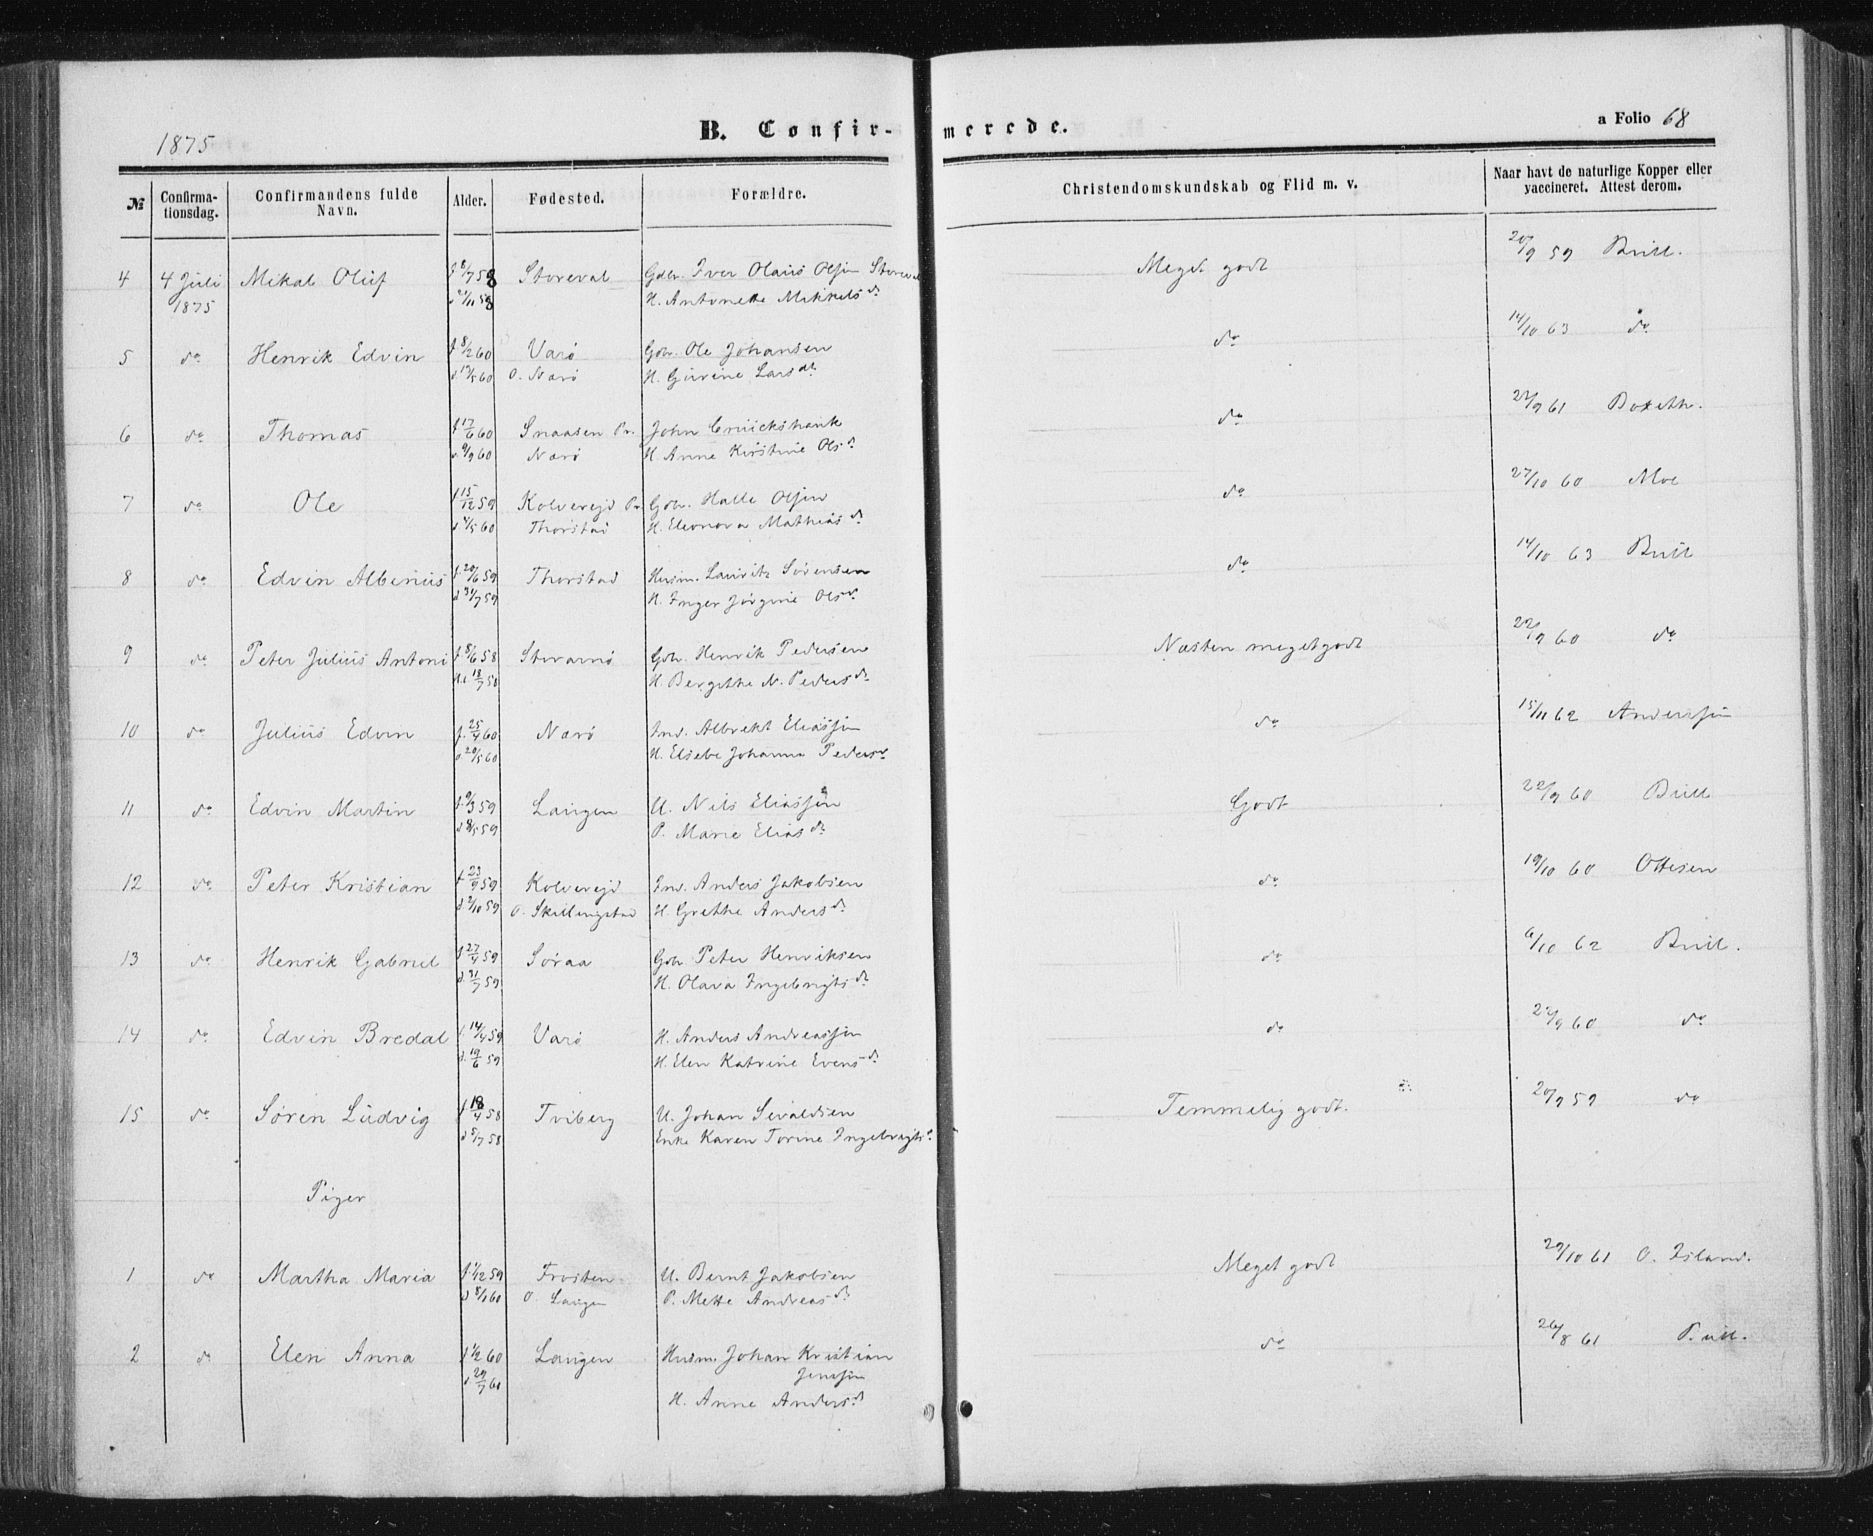 1875
B. Confir-merede.
a Folio 68
№ Confirma-tionsdag. Confirmandens fulde Navn. Alder. Fødested. Forældre. Christendomskundskab og Flid m. v. Naar havt de naturlige Kopper eller vaccineret. Attest derom.
4 4 Juli Mikal Oluf f 8/7 58 Storeval Gdbr. Iver Olaus Olsen Storeval Meget godt 20/9 59 Brill.
1875 58 H. Antonette Mikkelsdr
5 do Henrik Edvin f 8/2 60 Varø Gbr. Ole Johansen do 14/10 63 do
d. 17/5 60 O. Nærø H. Gurine Larsdtr
6 do Thomas f 17/6 60 Snaasen Pr. John Cruickshank do 61
d. 9/9 60 Nærø H. Anne Kirstine Olsdr
7 do Ole f 15/12 59 Kolverejd Pr. Gbr. Halle Olsen do 27/10 60 Moe
d 4/5 60 Thorstad H. Eleonora Mathiasdr
8 do Edvin Alberius f. 20/6 59 Thorstad Husm. Lauritz Sørensen do 14/10 63 Brill
d 31/7 59 H. Inger Jørgine Olsdr
9 do Peter Julius Antoni f 8/6 58 Gbr. Henrik Pedersen Næsten meget godt 22/9 60 do
18/7 58 H. Bergitte N. Pedersdr
10 do Julius Edvin f. 25/4 60 Nærø Ind. Albrekt Eliassen do 15/11 62 Anderssen
d 20/5 60 H. Elsebe Johanna Pedersdr
11 do Edvin Martin f. 9/3 59 Laugen U. Nils Eliassen Godt 22/9 60 Brill
d 8/5 59 P. Marie Eliasdr
12 do Peter Kristian f 23/9 59 Kolverejd Ind. Anders Jakobsen do 19/10 60 Ottesen
d 2/10 59 O. Skillingstad H. Grethe Andersdr
13 do Henrik Gabriel f 27/4 59 Søraa Gbr Peter Henriksen do 6/10 62 Brill.
d. 31/7 59 H. Olava Ingebrigtsdr
14 do Edvin Bredal f. 14/4 59 Varø H. Anders Andreassen do 22/9 60 do
d. 19/6 59 H. Elen Katrine Evensdr
15 do Søren Ludvig f 18/4 58 Tviberg U. Johan Sivaldsen Temmelig godt. 20/9 59 do
d 5/7 58 Enke Karen Torine Ingebrigtsdr
Piger
1 do Martha Maria f. 1/12 59 Frosten U. Bernt Jakobsen Meget godt 29/10 61
d 8/1 60 O. Laugen P. Mette Andreasdr
2 do Elen Anna f 1/2 60 Laugen Husm. Johan Kristian do 26/8 61 Brill.
d. 29/7 60 Jenssen
H. Anne Andersdr